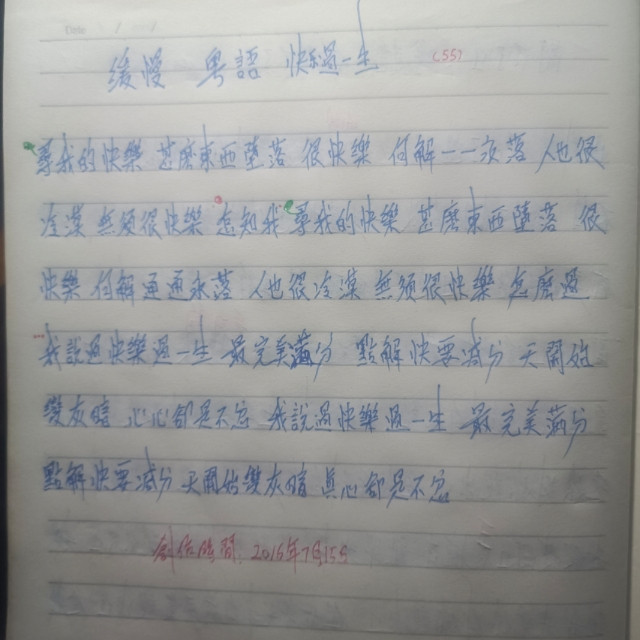 緩慢 粵語 快樂過一生 (55)
尋我的快樂 甚麼東西墮落 很快樂 何解一一衣落 人也很
冷漠 無須很快樂 怎知我尋我的快樂 甚麼東西墮落 很
快樂 何解通通衣落 人也很冷漠 無須很快樂 怎麼過
我說過快樂過一生 最完美滿分 點解快要減分 天開始
變灰暗 心心卻是不忿 我說過快樂過一生 最完美滿分
點解快要減分 天開始變灰暗 真心卻是不忿
創作時間:2015年7月15日